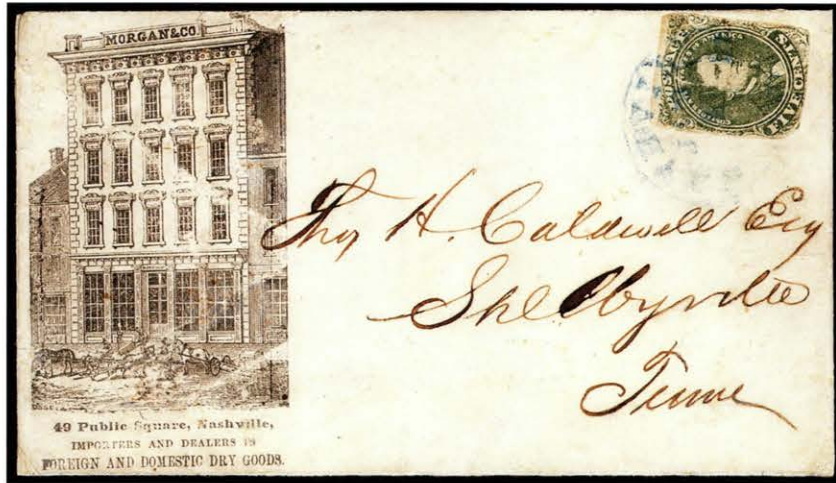 MORGAN & CO.
49 Public Square, Nashville,
IMPORTERS AND DEALERS IN
FOREIGN AND DOMESTIC DRY GOODS.
POSTAGE
FIVE CENTS
Thos H. Caldwell Esq
Shelbyville
Tenne